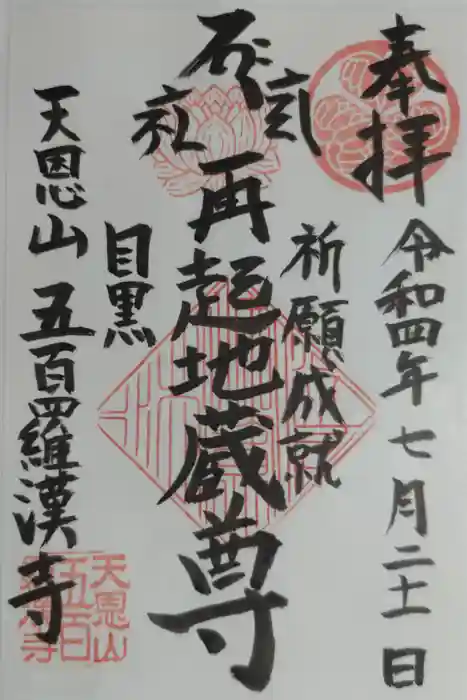 奉拝
令和四年七月二十一日
祈願成就
再起地蔵尊
目黒
天恩山 五百羅漢寺
天恩山
五百
羅漢寺